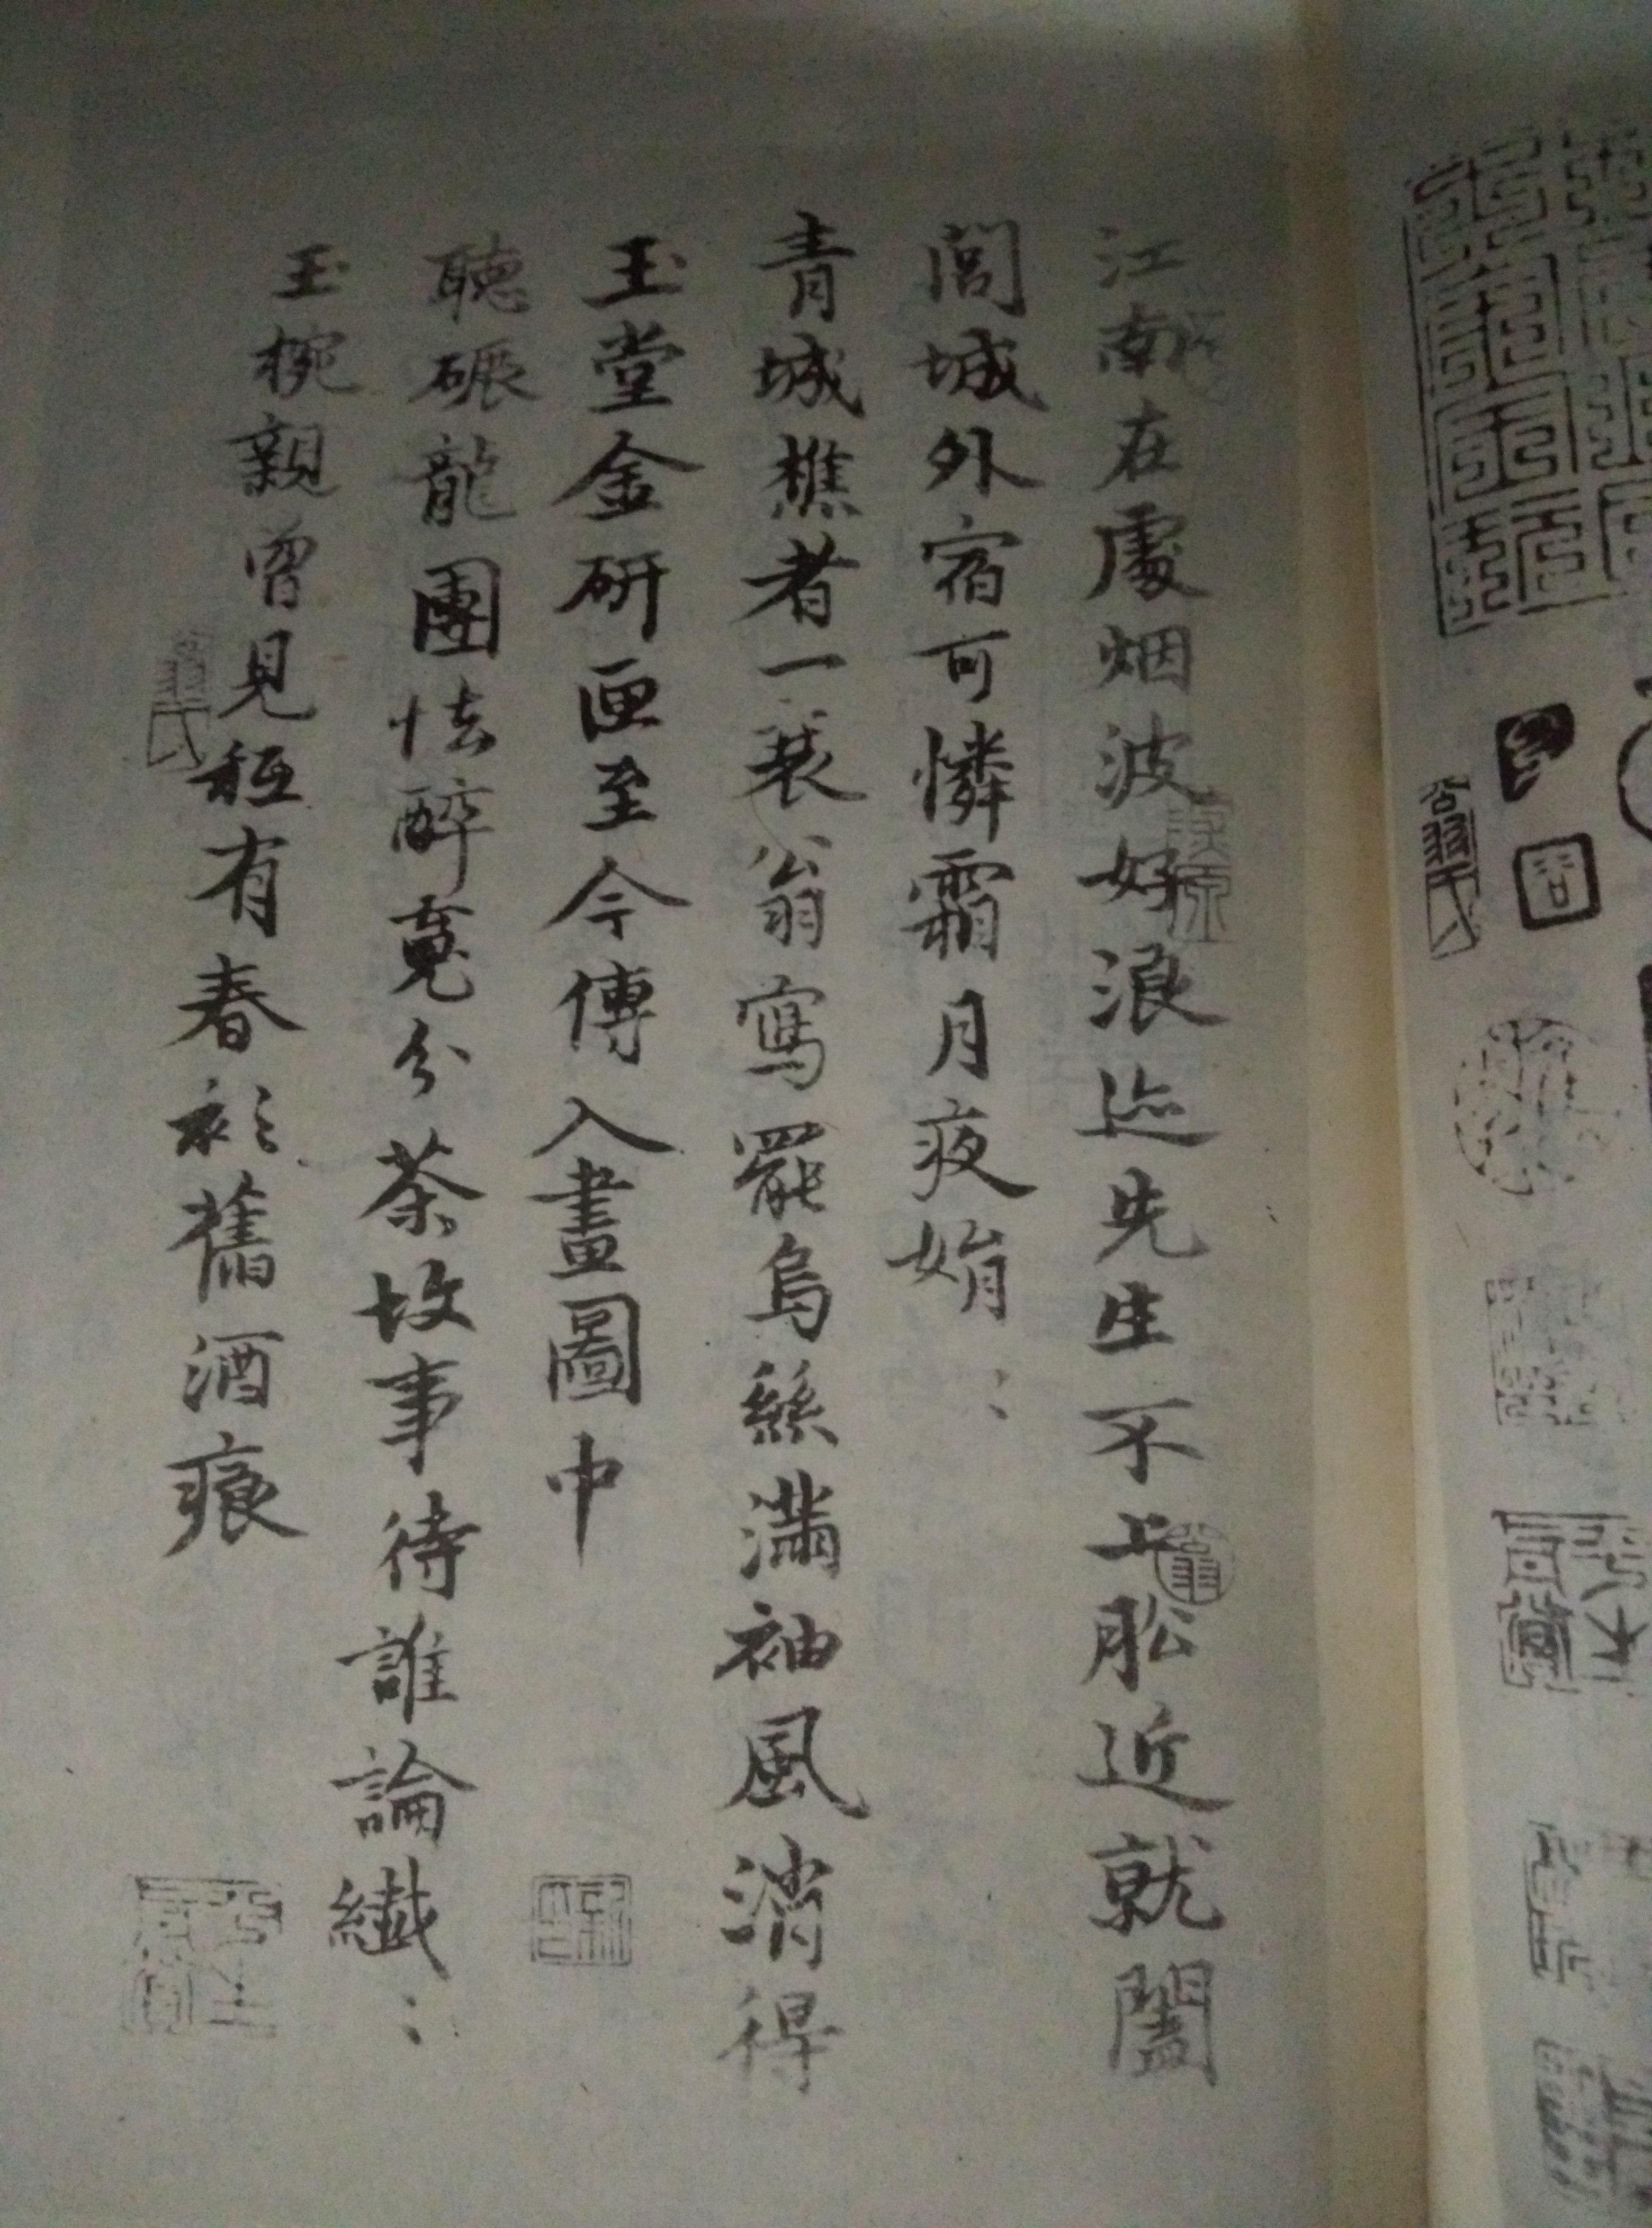 江南在處烟波好浪迹先生不上舩近就闔
閭城外宿可憐霜月夜娟〻
青城樵者一裘翁寫罷烏絲滿袖風消得
玉堂金研匣至今傳入畫圖中
聽碾龍團怯醉䰟分茶故事待誰論纎〻
玉椀親曾見秪有春衫舊酒痕